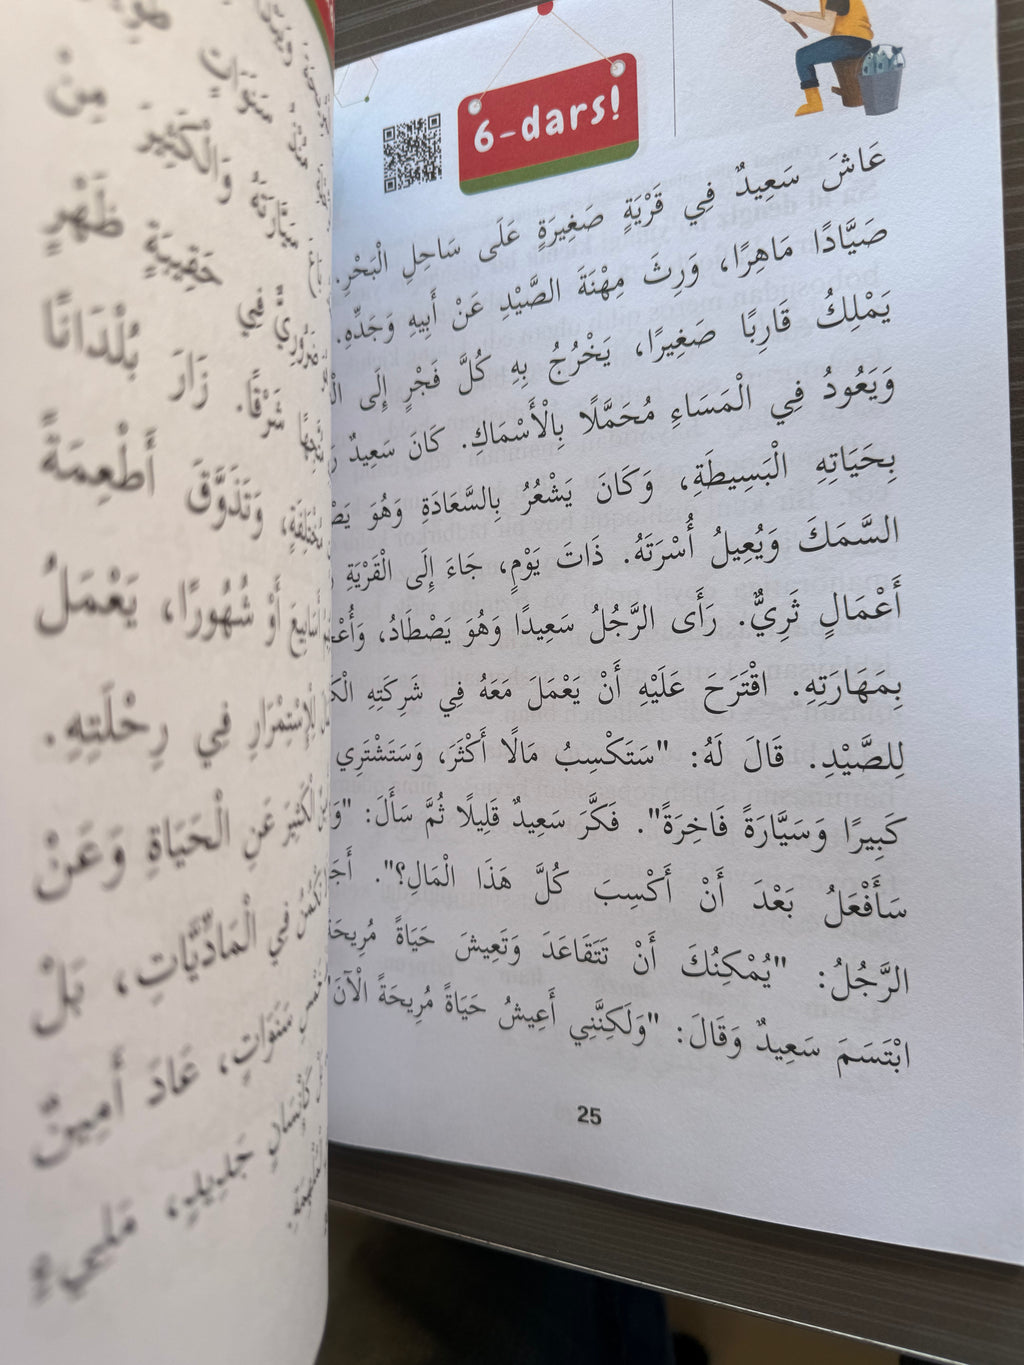 6-dars!
عَاشَ سَعِيدٌ فِي قَرْيَةٍ صَغِيرَةٍ عَلَى سَاحِلِ الْبَحْرِ.
صَيَّادًا مَاهِرًا، وَرِثَ مِهْنَةَ الصَّيْدِ عَنْ أَبِيهِ وَجَدِّهِ.
يَمْلِكُ قَارِبًا صَغِيرًا، يَخْرُجُ بِهِ كُلَّ فَجْرٍ إِلَى
وَيَعُودُ فِي الْمَسَاءِ مُحَمَّلًا بِالْأَسْمَاكِ. كَانَ سَعِيدٌ
بِحَيَاتِهِ الْبَسِيطَةِ، وَكَانَ يَشْعُرُ بِالسَّعَادَةِ وَهُوَ
السَّمَكَ وَيُعِيلُ أُسْرَتَهُ. ذَاتَ يَوْمٍ، جَاءَ إِلَى الْقَرْيَةِ
أَعْمَالٍ ثَرِيٌّ. رَأَى الرَّجُلُ سَعِيدًا وَهُوَ يَصْطَادُ،
بِمَهَارَتِهِ. اقْتَرَحَ عَلَيْهِ أَنْ يَعْمَلَ مَعَهُ فِي شَرِكَتِهِ
لِلصَّيْدِ. قَالَ لَهُ: "سَتَكْسِبُ مَالًا أَكْثَرَ، وَسَتَشْتَرِي
كَبِيرًا وَسَيَّارَةً فَاخِرَةً". فَكَّرَ سَعِيدٌ قَلِيلًا ثُمَّ سَأَلَ:
سَأَفْعَلُ بَعْدَ أَنْ أَكْسِبَ كُلَّ هَذَا الْمَالِ؟".
الرَّجُلُ: "يُمْكِنُكَ أَنْ تَتَقَاعَدَ وَتَعِيشَ حَيَاةً مُرِيحَةً
ابْتَسَمَ سَعِيدٌ وَقَالَ: "وَلَكِنَّنِي أَعِيشُ حَيَاةً مُرِيحَةً الْآنَ
25
مِنْ
وَالْكَثِيرَ
حَقِيبَةٍ ظَهْرٍ
شَرْقًا. زَارَ بُلْدَانًا
وَتَذَوَّقَ أَطْعِمَةً
أَسَابِيعَ أَوْ شُهُورًا، يَعْمَلُ
لِلِاسْتِمْرَارِ فِي رِحْلَتِهِ.
عَنِ الْحَيَاةِ وَعَنْ
فِي الْمَادِّيَّاتِ، بَلْ
سَنَوَاتٍ، عَادَ أَمِينٌ
جَدِيدٍ، مَلِيءٍ